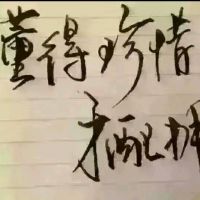 董得珍惜
才配拥